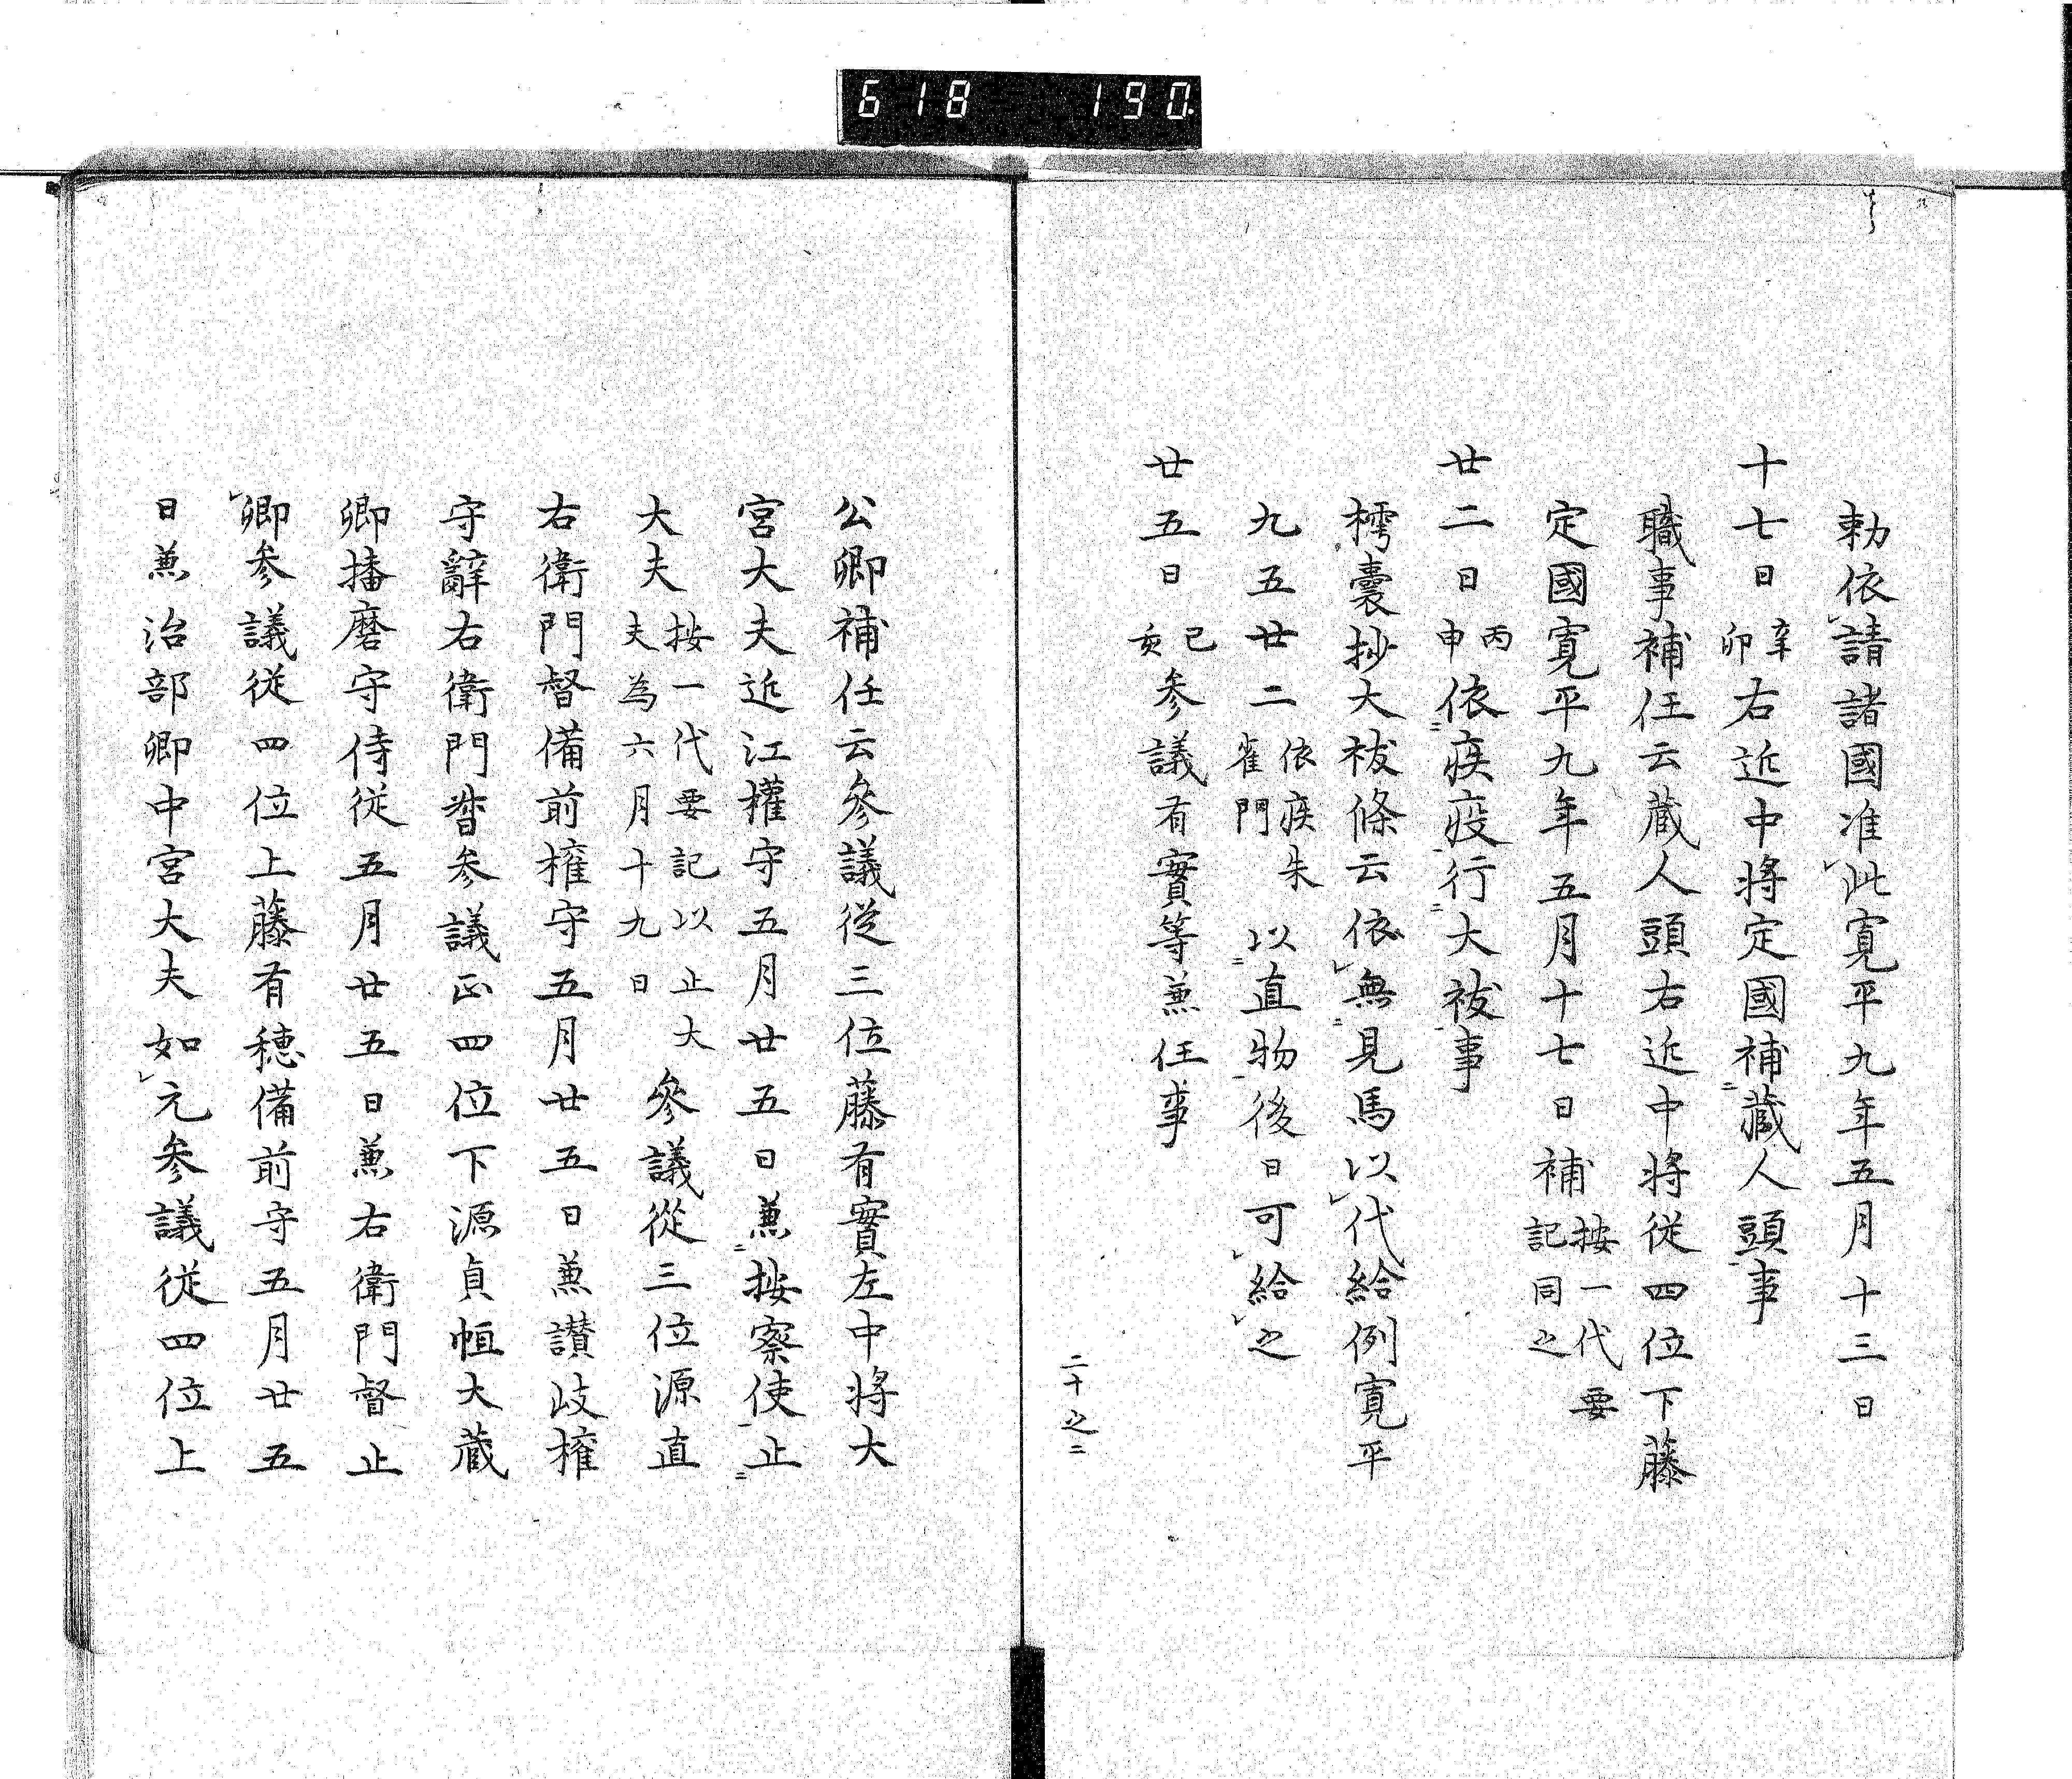 618 190.
勅依請諸國准此寛平九年五月十三日
十七日辛卯右近中将定國補蔵人頭事
職事補任云蔵人頭右近中将従四位下藤
定國寛平九年五月十七日補按一代要記同之
廿二日丙申依疾疫行大祓事
樗嚢抄大祓條云依無見馬以代給例寛平
九五廿二依疾朱雀門以直物後日可給之
廿五日己亥参議有實等兼任事
二十之二
公卿補任云參議従三位藤有實左中将大
宮大夫近江權守五月廿五日兼按察使止
大夫按一代要記以止大夫為六月十九日參議從三位源直
右衛門督備前権守五月廿五日兼讃岐権
守辭右衛門督参議正四位下源貞恒大蔵
卿播磨守侍従五月廿五日兼右衛門督止
卿参議従四位上藤有穂備前守五月廿五
日兼治部卿中宮大夫如元参議従四位上